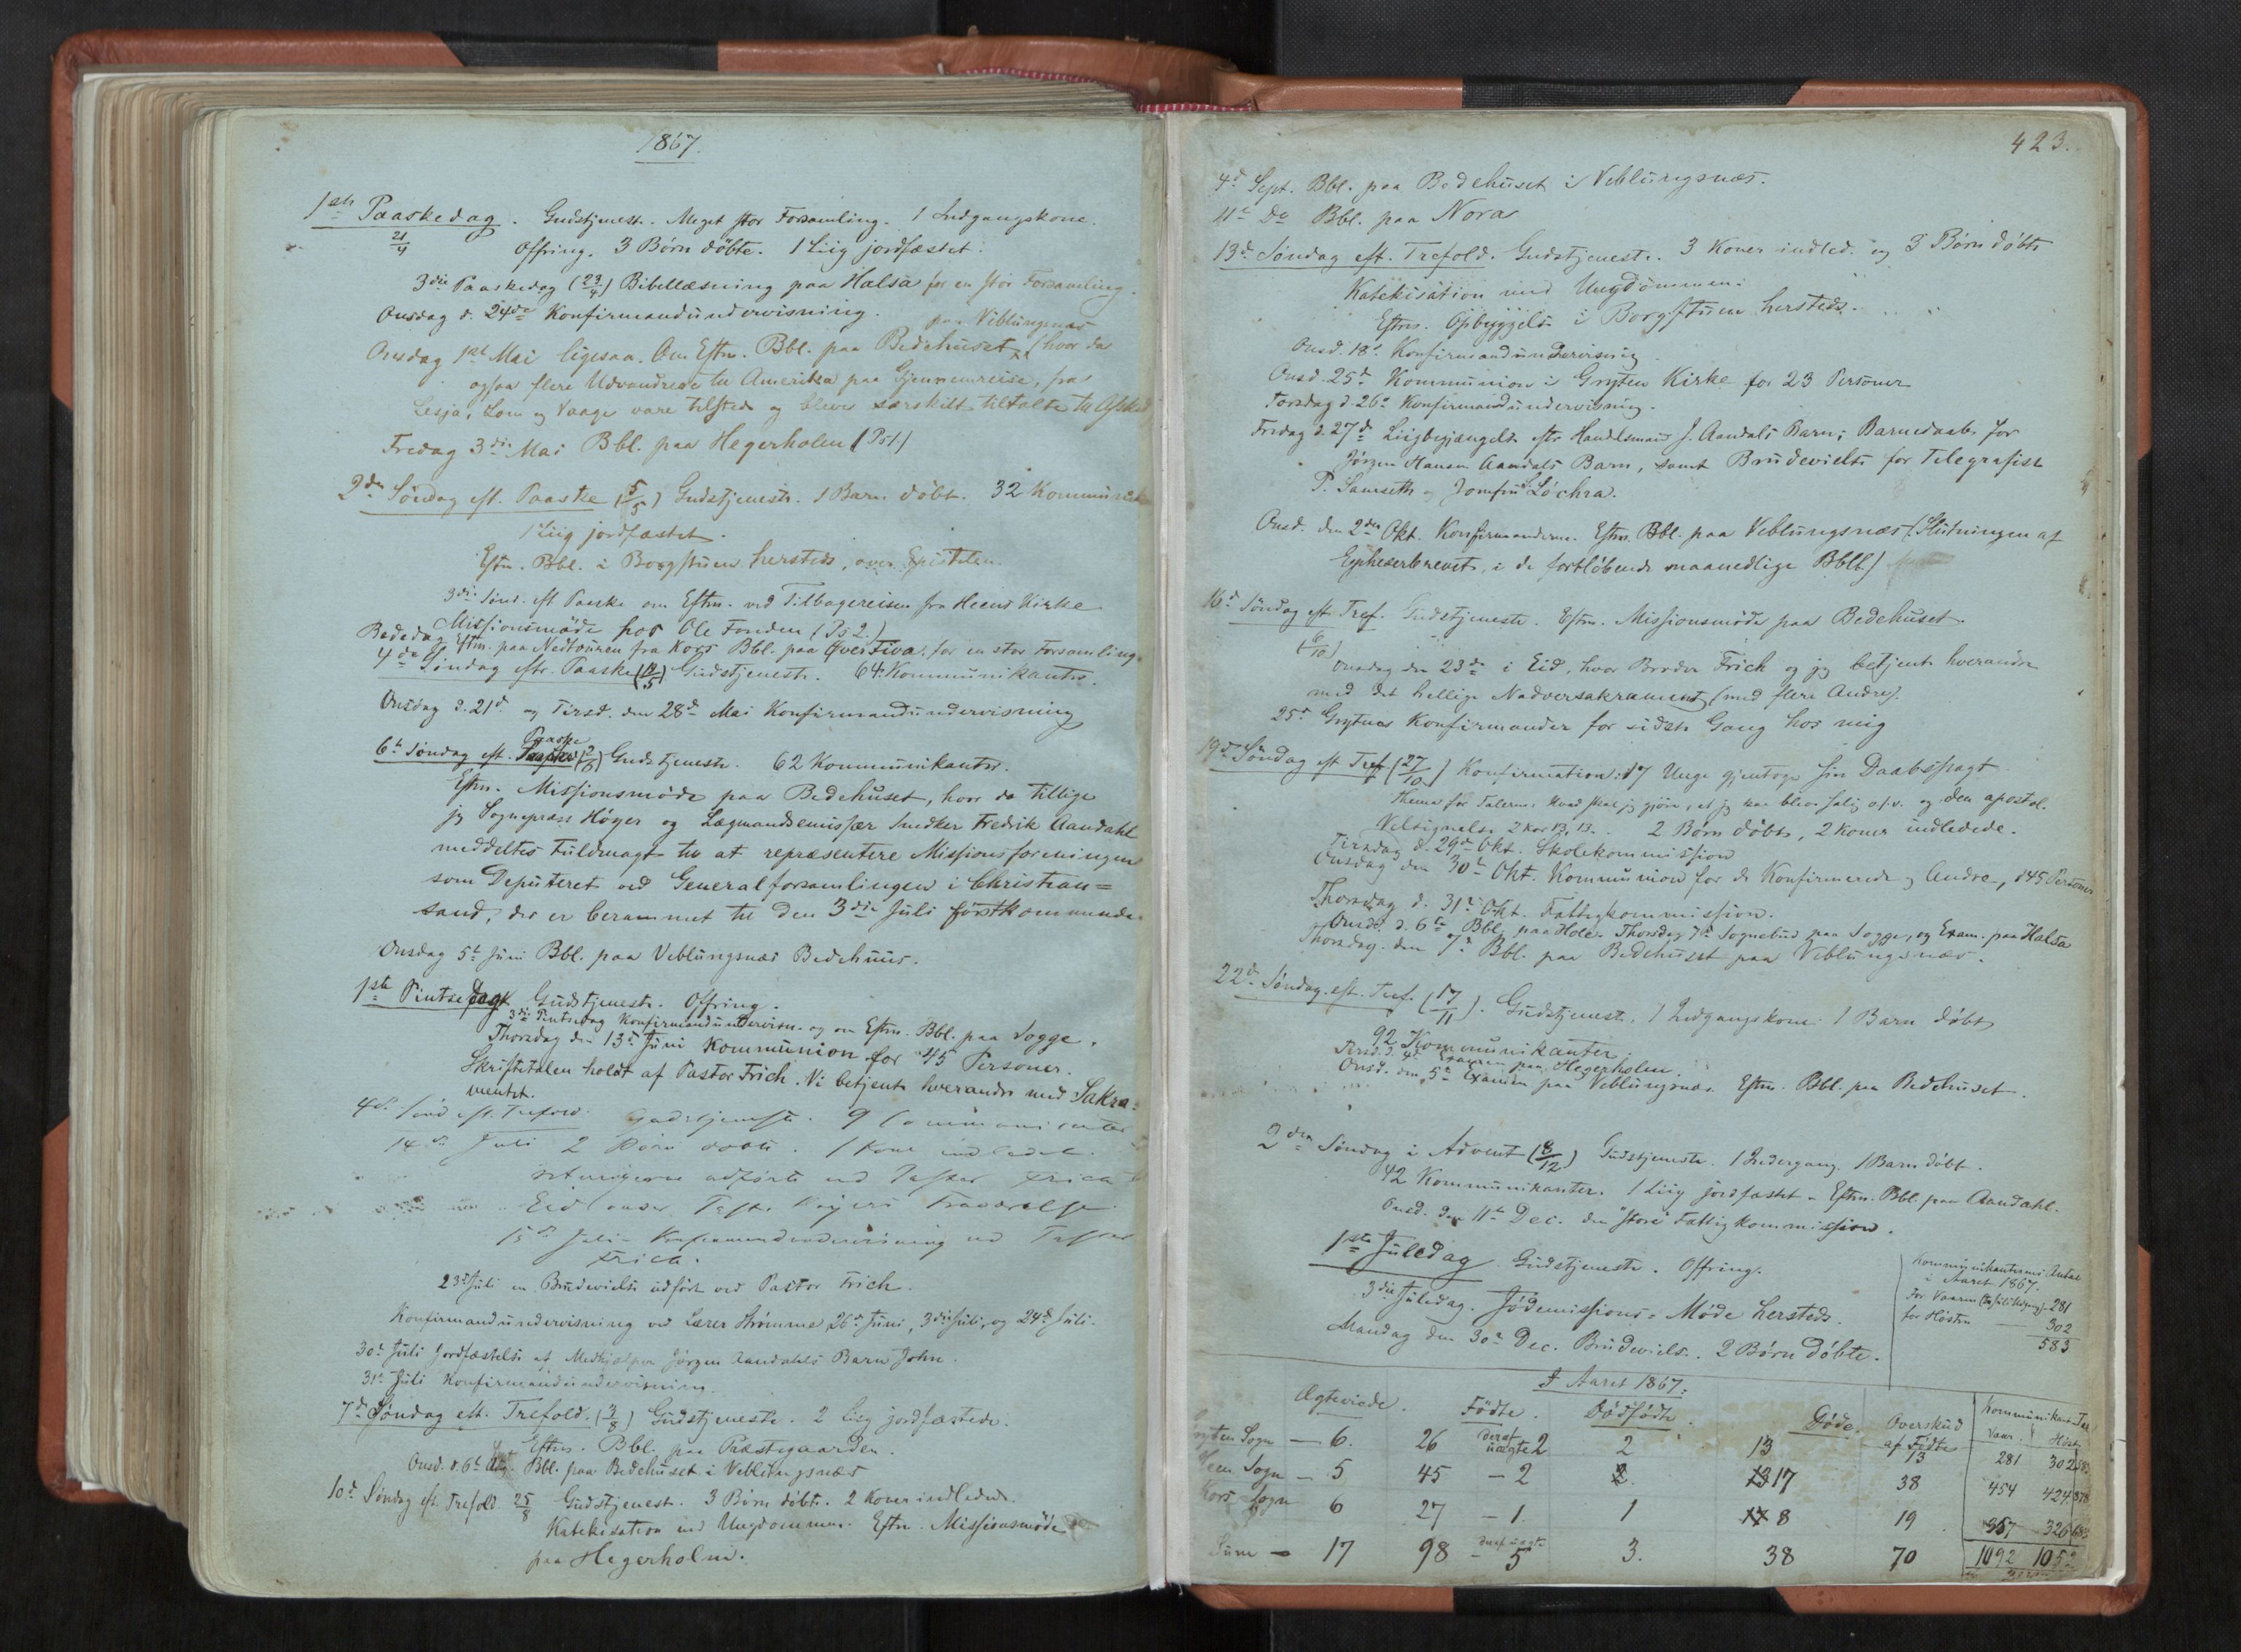 1867.
1ste Paaskedag. Gudstjeneste. Meget stor Forsamling. 1 Indgangskone.
21/4 Offring. 3 Børn döbte. 1 Liig jordfæstet.
3die Paaskedag (23/4) Bibellæsning paa Halsa for en stor Forsamling.
Onsdag d. 24de Konfirmandundervisning.
paa Veblungsnæs
Onsdag 1ste Mai ligesaa. Om Eftm. Bbl. paa Bedehuset, (hvor da
ogsaa flere Udvandrere til Amerika paa Gjennemreise, fra
Lesja, Lom og Vaage vare tilstede og bleve særskilt tiltalte til Afsked
Fredag 3die Mai Bbl. paa Hegerholen (Ps 1.)
2den Söndag eft. Paaske (5/5) Gudstjeneste. 1 Barn döbt. 32 Kommunik
1 Liig jordfæstet.
Eftm. Bbl. i Borgstuen hersteds, over Epistelen.
3die Sönd. eft Paaske om Eftm. ved Tilbagereisen fra Heens Kirke
Missionsmöde hos Ole Fonden (Ps 2.)
Bededag Eftm. paa Nedtouren fra Kors Bbl. paa Øver Fiva. for en stor Forsamling.
4de Söndag eftr. Paaske (19/5) Gudstjeneste. 64 Kommunikanter.
Onsdag d. 21de og Tirsd. den 28de Mai Konfirmandundervisning
Paaske
6te Söndag eft. (2/6) Gudstjeneste. 62 Kommunikanter.
Eftm. Missionsmöde paa Bedehuset, hvor da tillige
jeg Sognepræst Höyer og Lægmandsemissær Snedker Fredrik Aandahl
meddeltes Fuldmagt til at repræsentere Missionsforeningen
som Deputeret ved Generalforsamlingen i Christian=
sand, der er berammet til den 3die Juli förstkommende.
Onsdag 5te Juni Bbl. paa Veblungsnæs Bedehuus.
1ste Pintsedag. Gudstjeneste. Offring.
3die Pintsedag Konfirmandundervisn. og om Eftm. Bbl. paa Sogge.
Thorsdag den 13de Juni Kommunion for 45 Personer.
Skriftetalen holdt af Pastor Frich. Vi betjente hverandre med Sakra=
mentet.
4de Sönd eft. Trefold. Gudstjeneste. 9 Communicanter
14de Juli 2 Börn döbte. 1 Kone indledet.
udförte ved Pastor Frich
Eid under Pastor Höyers Fraværelse.
15de Juli Konfirmandundervisning ved Pastor
Frich.
23de Juli en Brudevielse udfört ved Pastor Frich.
Konfirmandundervisning ved Lærer Strömme 26de Juni, 3die Juli, og 24de Juli.
30te Juli Jordfæstelse af Medhjælper Jörgen Aandahls Barn John.
31te Juli Konfirmandundervisning.
7de Söndag eft. Trefold. (3/8) Gudstjeneste. 2 Liig jordfæstede.
Eftm. Bbl. paa Præstegaarden.
Onsd. d. 6te Aug. Bbl. paa Bedehuset i Veblungsnæs
10de Söndag eft. Trefold. 25/8 Gudstjeneste. 3 Börn döbte. 2 Koner indledede.
Katekisation med Ungdommen. Eftm. Missionsmöde
paa Hegerholm.
423.
4de Sept. Bbl. paa Bedehuset i Veblungsnæs.
11te Do Bbl. paa Nora
13de Söndag eft. Trefold. Gudstjeneste. 3 Koner indled. og 3 Börn döbte
Katekisation med Ungdommen.
Eftm. Opbyggelse i Borgstuen hersteds.
Onsd. 18de Konfirmandundervisning.
Onsd. 25de Kommunion i Gryten Kirke for 23 Personer
Torsdag d. 26de Konfirmandundervisning.
Fredag d. 27de Liigbegjængelse eftr. Handelsmand J. Aandals Barn; Barnedaab for
Jörgen Hansen Aandals Barn, samt Brudevielse for Telegrafist
P. Samseth og Jomfru Löchra.
Onsd. den 2den Okt. Konfirmanderne. Eftm. Bbl. paa Veblungsnæs (Slutningen af
Epheserbrevet, i de fortlöbende maanedlige Bbll.)
16de Söndag eft. Tref. Gudstjeneste. Eftm. Missionsmöde paa Bedehuset.
(6/10)
Onsdag den 23de i Eid, hvor Broder Frich og jeg betjente hverandre
med det hellige Nadversakrament (med flere Andre).
25de Grytnes Konfirmander for sidste Gang hos mig
19de Söndag eft Tref. (27/10) Konfirmation: 17 Unge gjentoge sin Daabspagt.
Thema for Talerne: Hvad skal jeg gjöre, at jeg kan blive salig o.s.v. og den apostol.
Velsignelse 2 Kor 13, 13. 2 Börn döbte, 2 Koner indledede.
Tirsdag d. 29de Okt. Skolekommission
Onsdag den 30te Okt. Kommunion for de Konfirmerede og Andre, 145 Personer
Thorsdag d. 31te Okt. Fattigkommission.
Onsd. d. 6te Bbl. paa Hole. Thorsdag 7de Sognebud paa Sogge, og Exam. paa Halsa
Thorsdag den 7de Bbl. paa Bedehuset paa Veblungsnæs.
22de Söndag eft. Tref. (17/11). Gudstjeneste. 1 Indgangskone. 1 Barn döbt
92 Kommunikanter.
Tirsd. d. 4de Examen paa Hegerholen.
Onsd. den 5te Examen paa Veblungsnæs. Eftm. Bbl. paa Bedehuset.
2den Söndag i Advent (8/12) Gudstjeneste. 1 Indgergang. 1 Barn döbt.
42 Kommunikanter. 1 Liig jordfæstet. Eftm. Bbl. paa Aandahl.
Onsd. den 11te Dec. den "store" Fattigkommission.
1ste Juledag. Gudstjeneste. Offring.
3die Juledag. Jödemissions-Möde hersteds.
Mandag den 30te Dec. Brudeviels. 2 Börn döbte.
Kommunikanternes Antal
i Aaret 1867.
For Vaaren 281
for Hösten 302
583
I Aaret 1867:
Ægteviede. Födte. Dödfödte. Döde. Overskud af Födte Kommunikanter Vaar. Höst
Gryten Sogn — 6. 26 deraf uægte 2 2 13 13 281 302 583
Heen Sogn — 5 45 — 2 17 38 454 424 878
Kors Sogn 6 27 — 1. 1 8 19 357 326 683
Sum — 17 98 — deraf uægte 5 3. 38 70 1092 1052